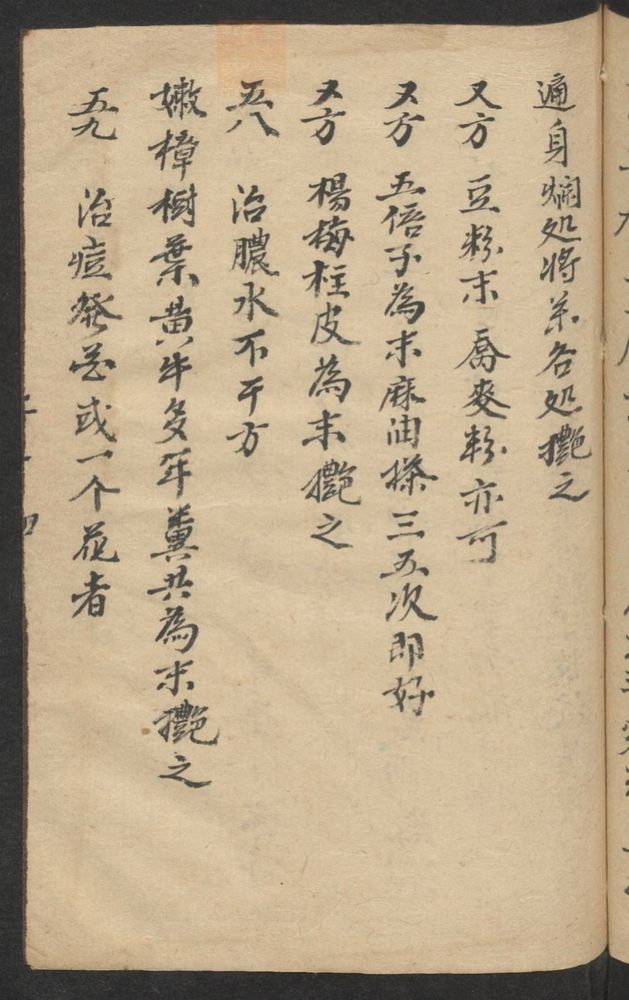 遍身爛処將米各処𢺞之
又方 豆粉末 蕎麥粉亦可
又方 五倍子為末麻油搽三五次即好
又方 楊梅柱皮為末之
五八 治膿水不干方
嫩樟樹葉黄牛多年糞共為末之
五九 治痘發 或一个花者